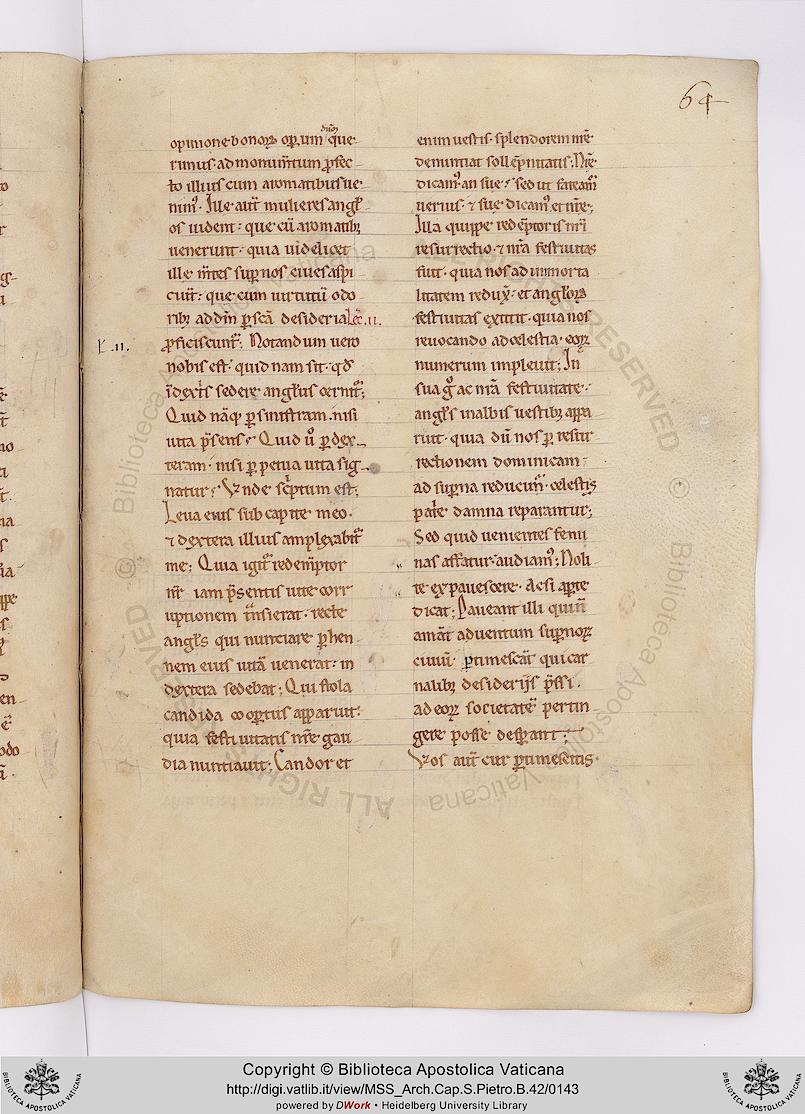 64
opinione bonoꝝ oꝑ,um dñm que
rimus· ad monum̄tum ꝓfec
to illius cum aromatibus ue
nim᷒. Ille aut̄ mulieres angł
os uident· que cū aromatibꝫ
uenerunt· quia uidelicet
ille m̄tes suꝑnos ciues aspi
ciunt̄· que cum uirtutū odo
ribꝫ ad dn̄m ꝑ scā desideria Lec̄.ii.
ꝓficiscunt᷒. Notandum uero
nobis est· quid nam sit· qđ
ī dext̄is sedere angłus cernit᷒;
Quid nāqꝫ ꝑ sinistram· nisi
uita p̄sens? Quid ū ꝑ dex
teram· nisi ꝑpetua uita sig
natur? Vnde sc̄ptum est;
Leua eius sub capite meo·
⁊ dextera illius amplexabit᷒
me; Quia igit᷒ redemptor
nr̄ iam p̄sentis uite corr
uptionem t̄nsierat· recte
angłs qui nunciare ꝑhen
nem eius uitā uenerat· in
dextera sedebat; Qui stola
candida cooꝑtus apparuit·
quia festiuitatis nr̄e gau
dia nuntiauit; Candor et
enim uestis· splendorem nr̄e
denuntiat sollēpnitatis; Nr̄e
dicam᷒ an sue? sed ut fateam᷒
uerius· ⁊ sue dicam᷒ et nr̄e;
Illa quippe redēptoris nr̄i
resurrectio· ⁊ nr̄a festiuitas
fuit· quia nos ad immorta
litatem redux̄· et angłoꝝ
festiuitas extitit· quia nos
reuocando ad celestia· eoꝝ
numerum impleuit; In
sua ḡ ac nr̄a festiuitate·
angłs in albis uestibꝫ appa
ruit· quia dū nos ꝑ resur
rectionem dominicam·
ad suꝑna reducim᷒· celestis
patr̄e damna reparantur;
Sed quid uenientes femi
nas affatur· audiam᷒; Noli
te expauescere· Ac si aꝑte
dicat; Paueant illi qui n̄
amāt aduentum suꝑnoꝝ
ciuiū· ꝑtimescāt qui car
nalibꝫ desiderijs p̄ssi·
ad eoꝝ societatē pertin
gere posse desꝑant;
Vos aut̄ cur ꝑtimescitis·
L̄.ii.
Copyright © Biblioteca Apostolica Vaticana
http://digi.vatlib.it/view/MSS_Arch.Cap.S.Pietro.B.42/0143
powered by DWork • Heidelberg University Library